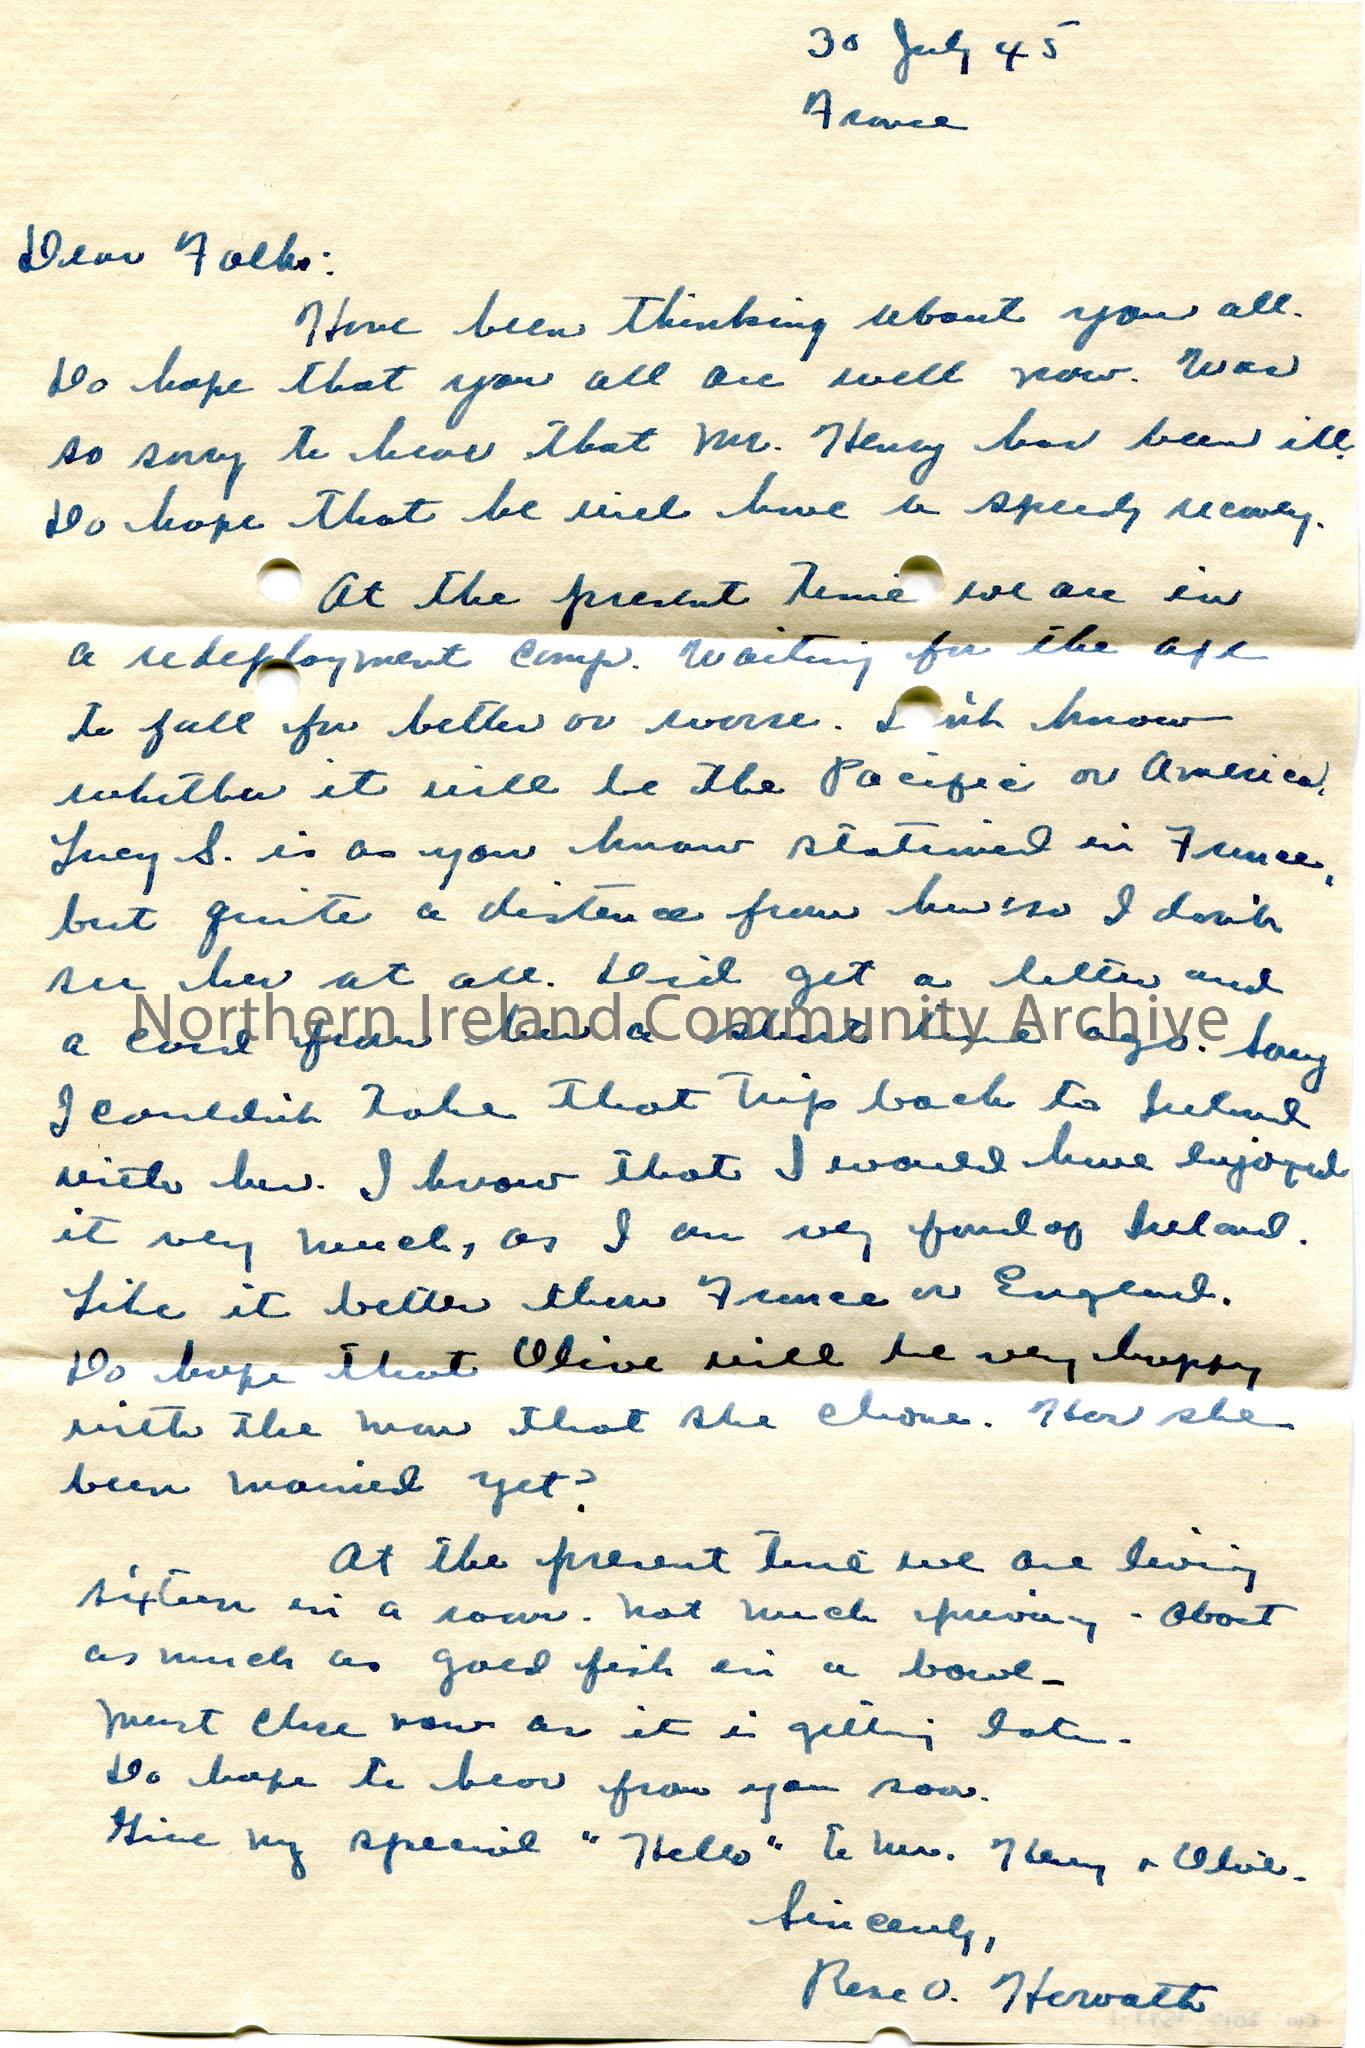 30 July 45
France
Dear Folks:
Have been thinking about you all.
Do hope that you all are well now. Was
so sorry to hear that Mr. Henry has been ill.
Do hope that he will have a speedy recovery.
At the present time we are in
a redeployment camp. Waiting for the axe
to fall for better or worse. Don't know
whether it will be the Pacific or America.
Lucy S. is as you know stationed in France,
but quite a distance from here so I don't
see her at all. Did get a letter and
a card from her a short time ago. Sorry
Northern Ireland Community Archive
I couldn't take that trip back to Ireland
with her. I know that I would have enjoyed
it very much, as I am very fond of Ireland.
Like it better than France or England.
Do hope that Olive will be very happy
with the man that she chose. Has she
been married yet?
At the present time we are living
sixteen in a room. Not much privacy - about
as much as gold fish in a bowl -
Must close now as it is getting late.
Do hope to hear from you soon.
Give my special "Hello" to Mr. Henry & Olive.
Sincerely,
Rose O. Horvath